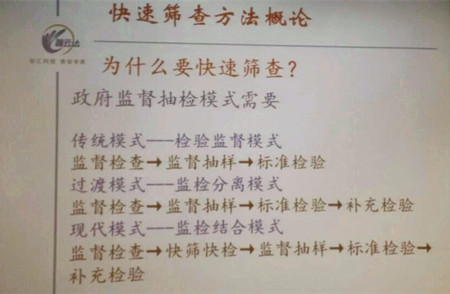 快速筛查方法概论
智云达
为什么要快速筛查?
政府监督抽检模式需要
传统模式——检验监督模式
监督检查→监督抽样→标准检验
过渡模式——监检分离模式
监督检查→监督抽样→标准检验→补充检验
现代模式——监检结合模式
监督检查→快筛快检→监督抽样→标准检验→
补充检验